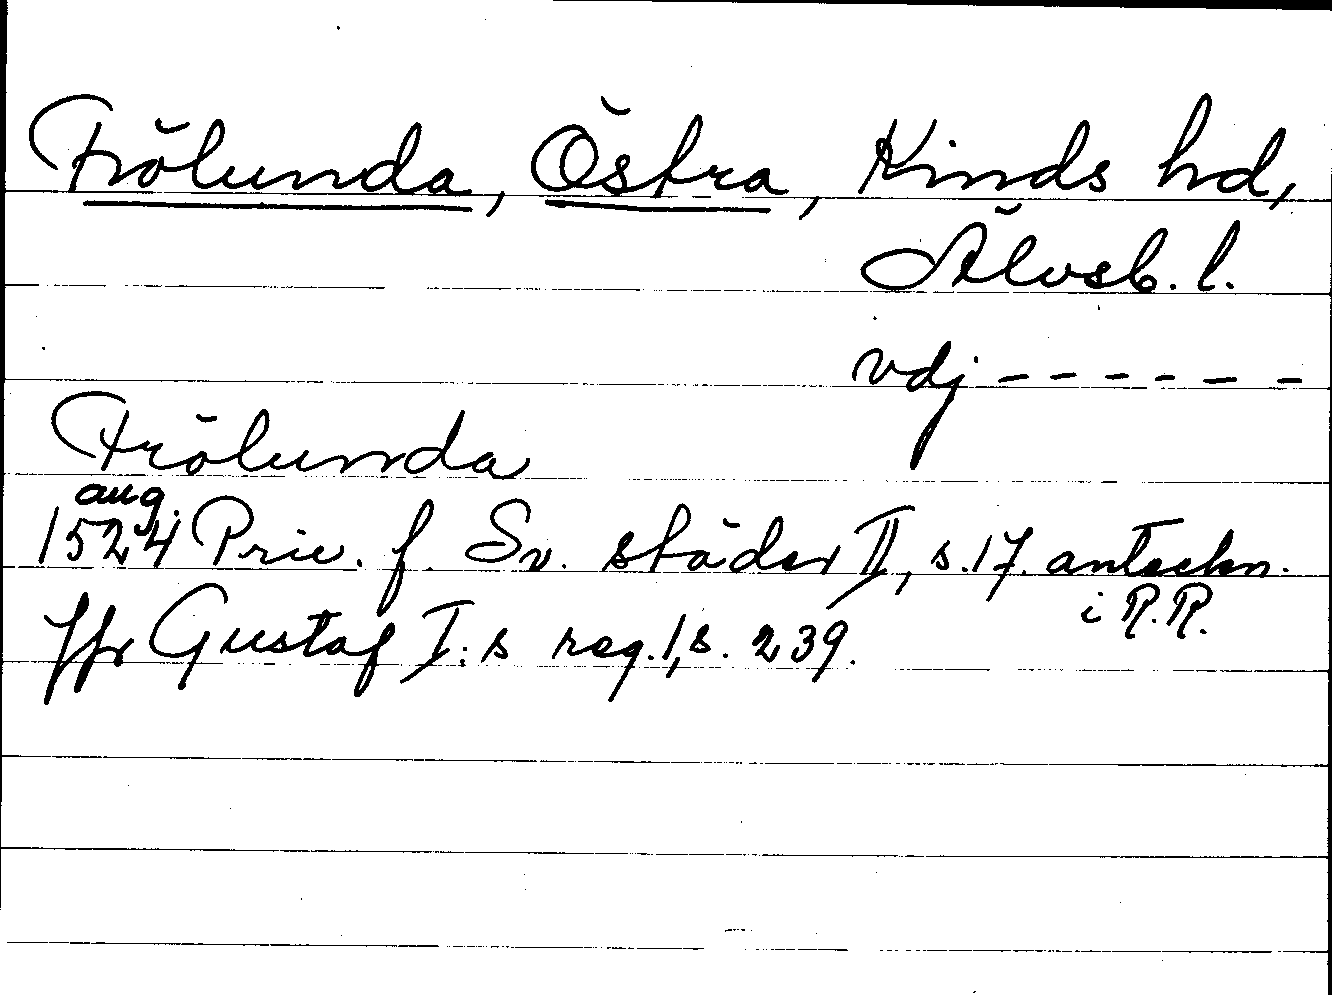 Frölunda, Östra, Kinds hd,
Älvsb. l.
vdj - - - - - -
Frölunda
aug.
1524 Priv. f. Sv. städer II, s.17. anteckn.
i R.R.
Jfr Gustaf I:s reg.1,s. 239.